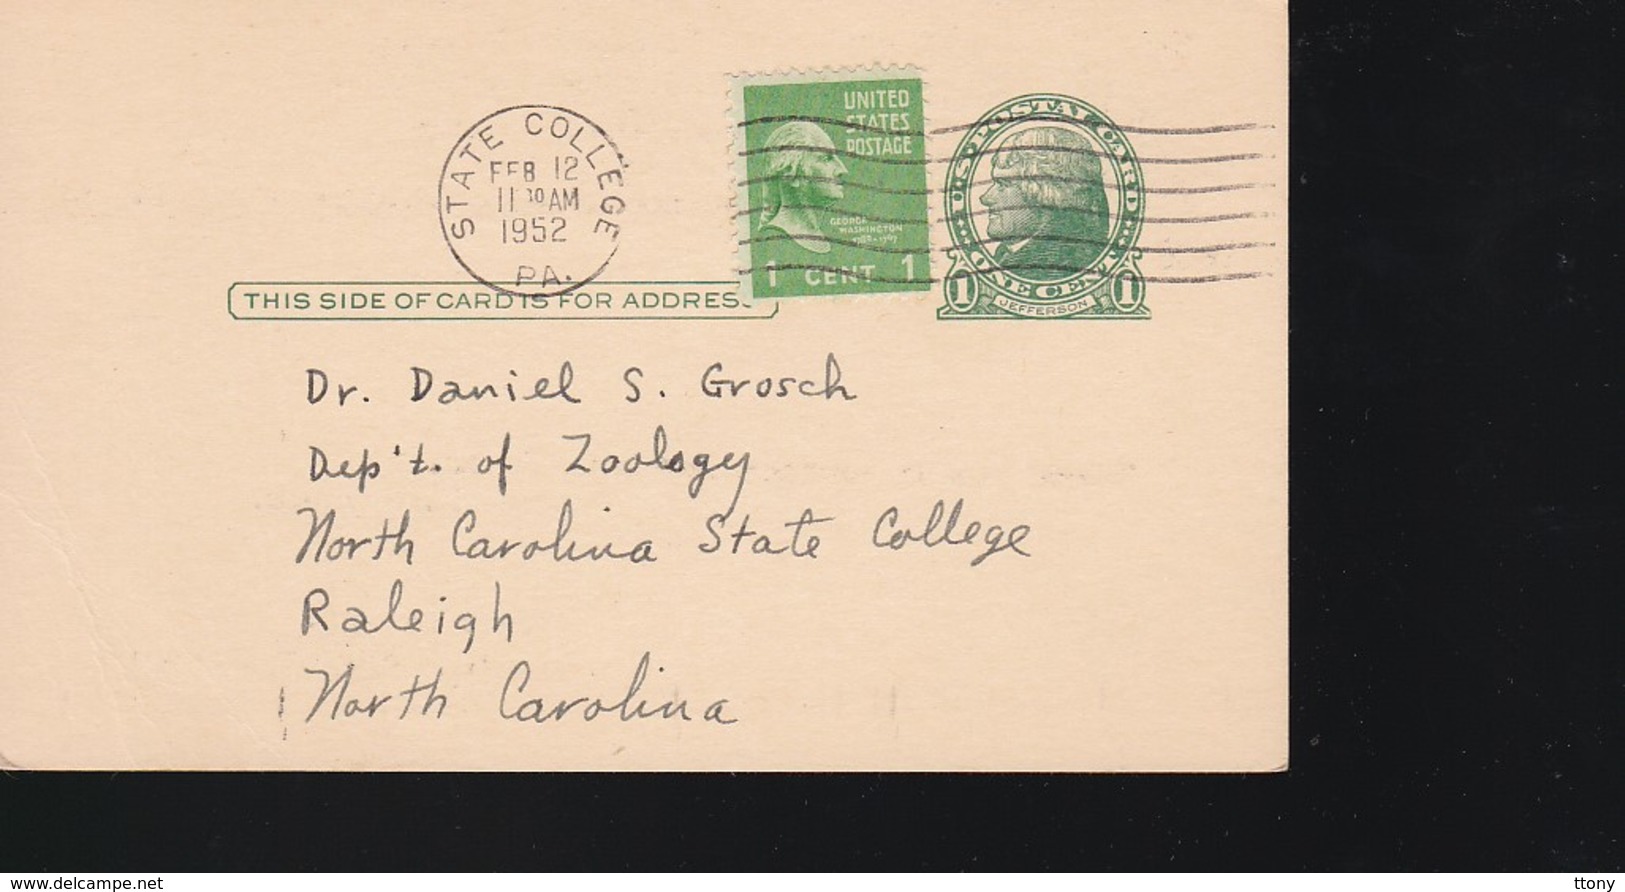 STATE COLLEGE
FEB 12
11 30 AM
1952
PA.
UNITED
STATES
POSTAGE
GEORGE
WASHINGTON
1789-1797
1 CENT 1
U.S. POSTAL CARD
1 ONE CENT 1
JEFFERSON
THIS SIDE OF CARD IS FOR ADDRESS
Dr. Daniel S. Grosch
Dep't. of Zoology
North Carolina State College
Raleigh
North Carolina
delcampe.net
ttony